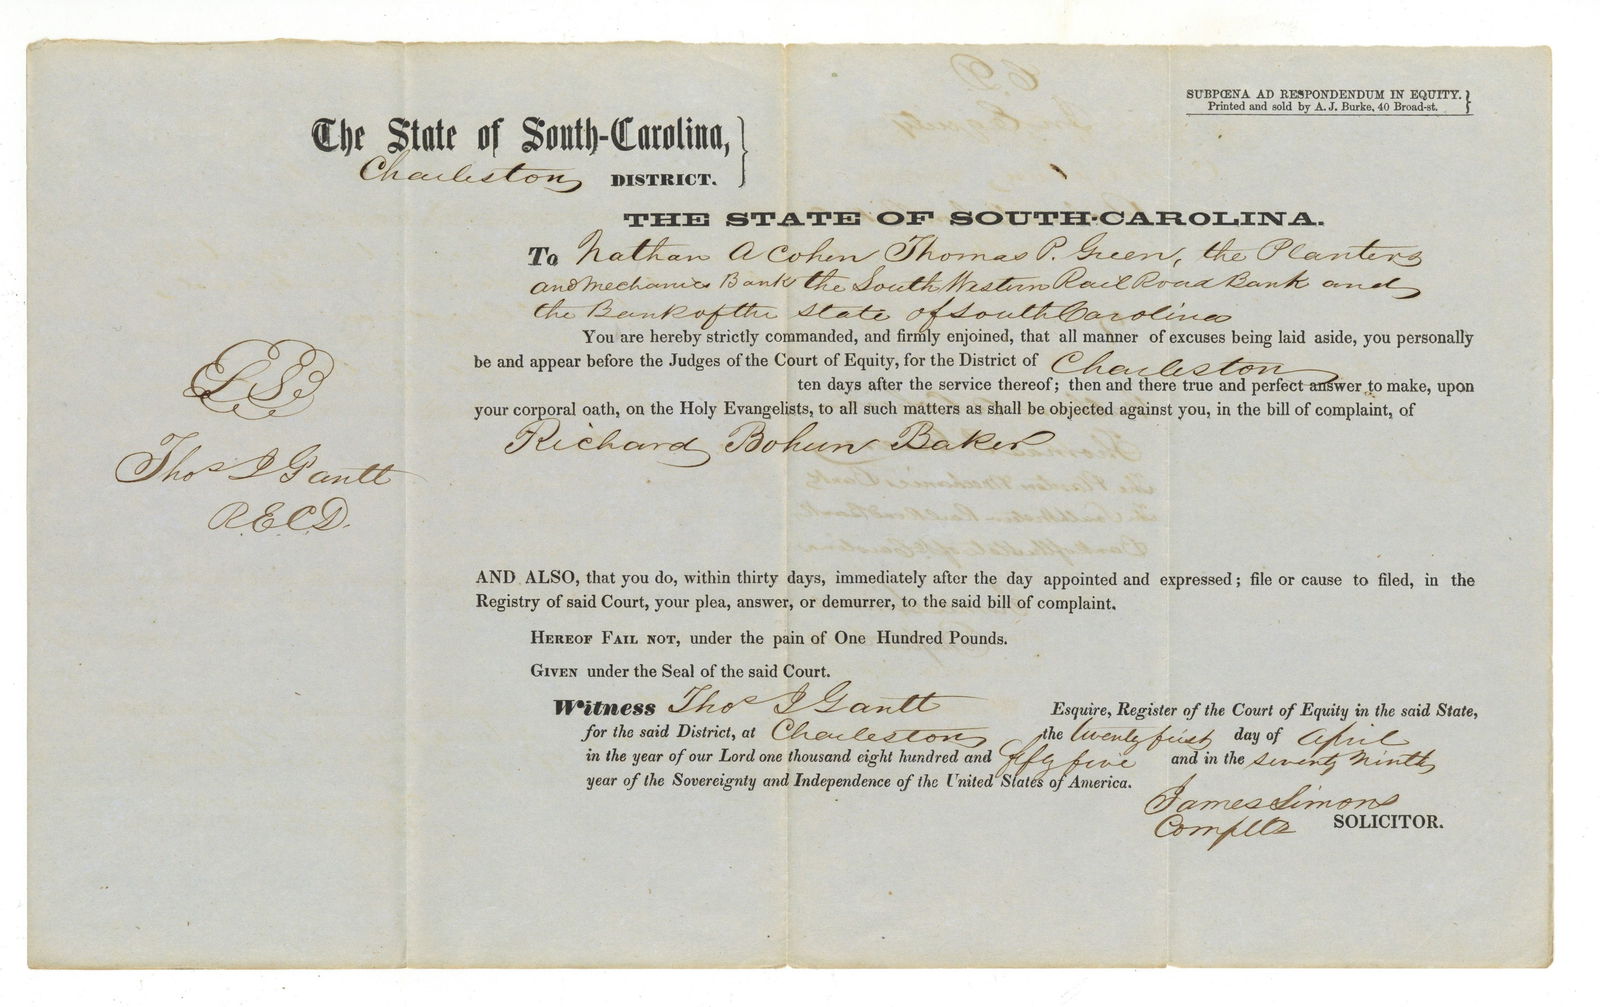 SUBPŒNA AD RESPONDENDUM IN EQUITY.
Printed and sold by A. J. Burke, 40 Broad-st.
The State of South-Carolina,
Charleston DISTRICT.
THE STATE OF SOUTH-CAROLINA.
To Nathan A Cohen Thomas P. Green, the Planters
and Mechanics Bank the South Western Rail Road Bank and
the Bank of the State of South Carolina
You are hereby strictly commanded, and firmly enjoined, that all manner of excuses being laid aside, you personally
be and appear before the Judges of the Court of Equity, for the District of Charleston
ten days after the service thereof; then and there true and perfect answer to make, upon
your corporal oath, on the Holy Evangelists, to all such matters as shall be objected against you, in the bill of complaint, of
Richard Bohun Baker
LS
Thos J Gantt
R.E.C.D.
AND ALSO, that you do, within thirty days, immediately after the day appointed and expressed; file or cause to filed, in the
Registry of said Court, your plea, answer, or demurrer, to the said bill of complaint.
HEREOF FAIL NOT, under the pain of One Hundred Pounds.
GIVEN under the Seal of the said Court.
Witness Thos J Gantt Esquire, Register of the Court of Equity in the said State,
for the said District, at Charleston the twenty first day of April
in the year of our Lord one thousand eight hundred and fifty five and in the seventy ninth
year of the Sovereignty and Independence of the United States of America.
James Simons
Complts SOLICITOR.